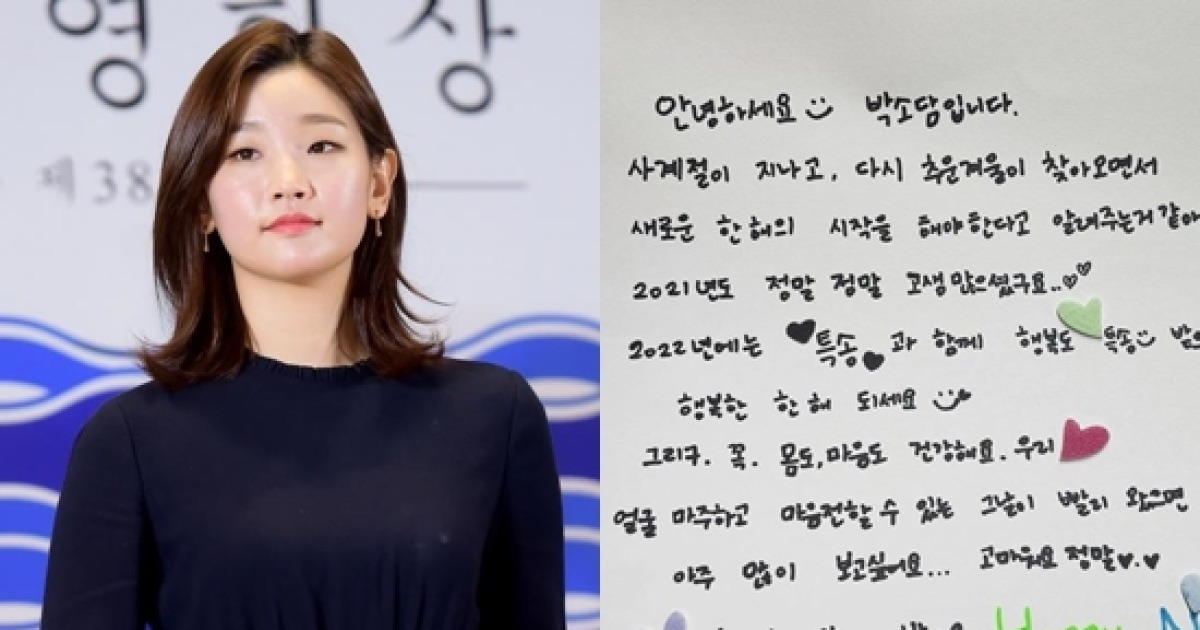 영화상
제38
안녕하세요 박소담입니다.
사계절이 지나고, 다시 추운겨울이 찾아오면서
새로운 한해의 시작을 해야한다고 알려주는거같아
2021년도 정말 정말 고생많으셨구요..
2022년에는 특송과 함께 행복도 특송
행복한 한해 되세요
그리구. 꼭. 몸도, 마음도 건강해요. 우리
얼굴 마주하고 마음전할 수 있는 그날이 빨리 왔으면
아주 많이 보고싶어요... 고마워요 정말